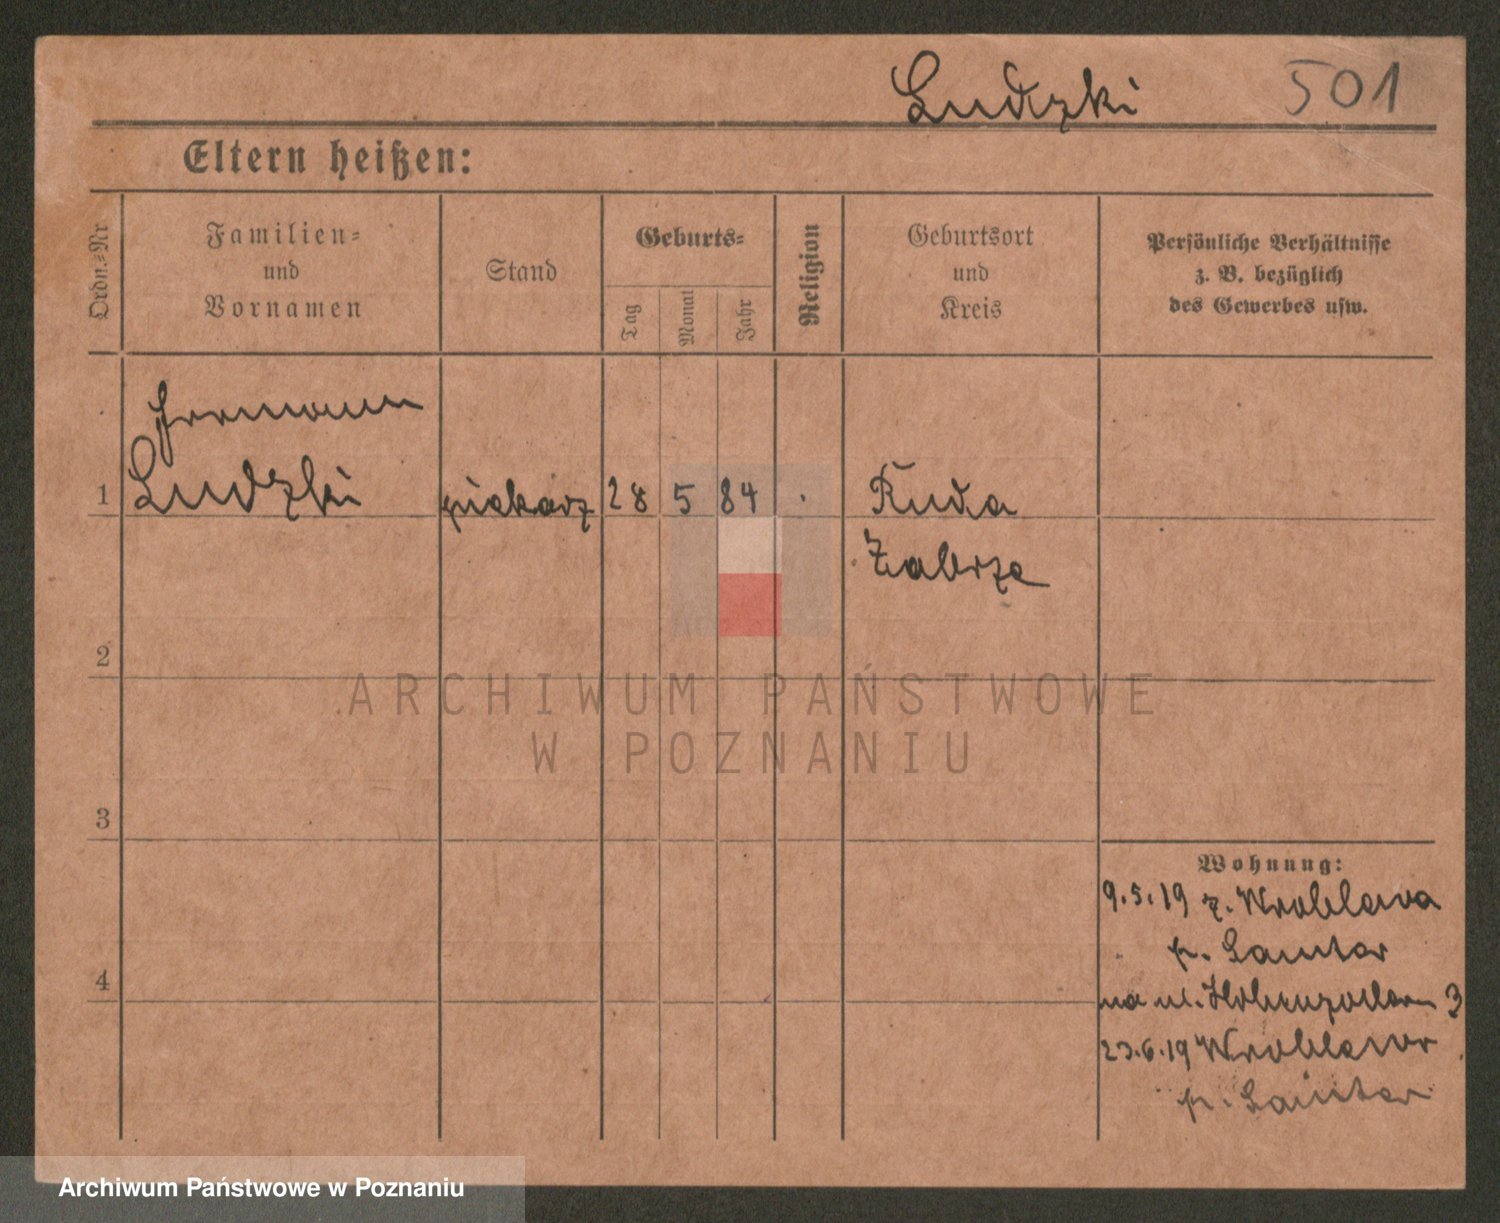 Ludzki 501
Eltern heißen:
Ordn.-Nr
Familien-
und
Vornamen
Stand
Geburts-
Tag
Monat
Jahr
Religion
Geburtsort
und
Kreis
Persönliche Verhältnisse
z. B. bezüglich
des Gewerbes usw.
Hermann
1 Ludzki piekarz 28 5 84 Ruda
Zabrze
2
ARCHIWUM PAŃSTWOWE
W POZNANIU
3
Wohnung:
9.5.19 z. Wroblewa
p. Samter
4
na ul. Hohenzollern 3
23.6.19 Wroblewo
p. Samter
Archiwum Państwowe w Poznaniu